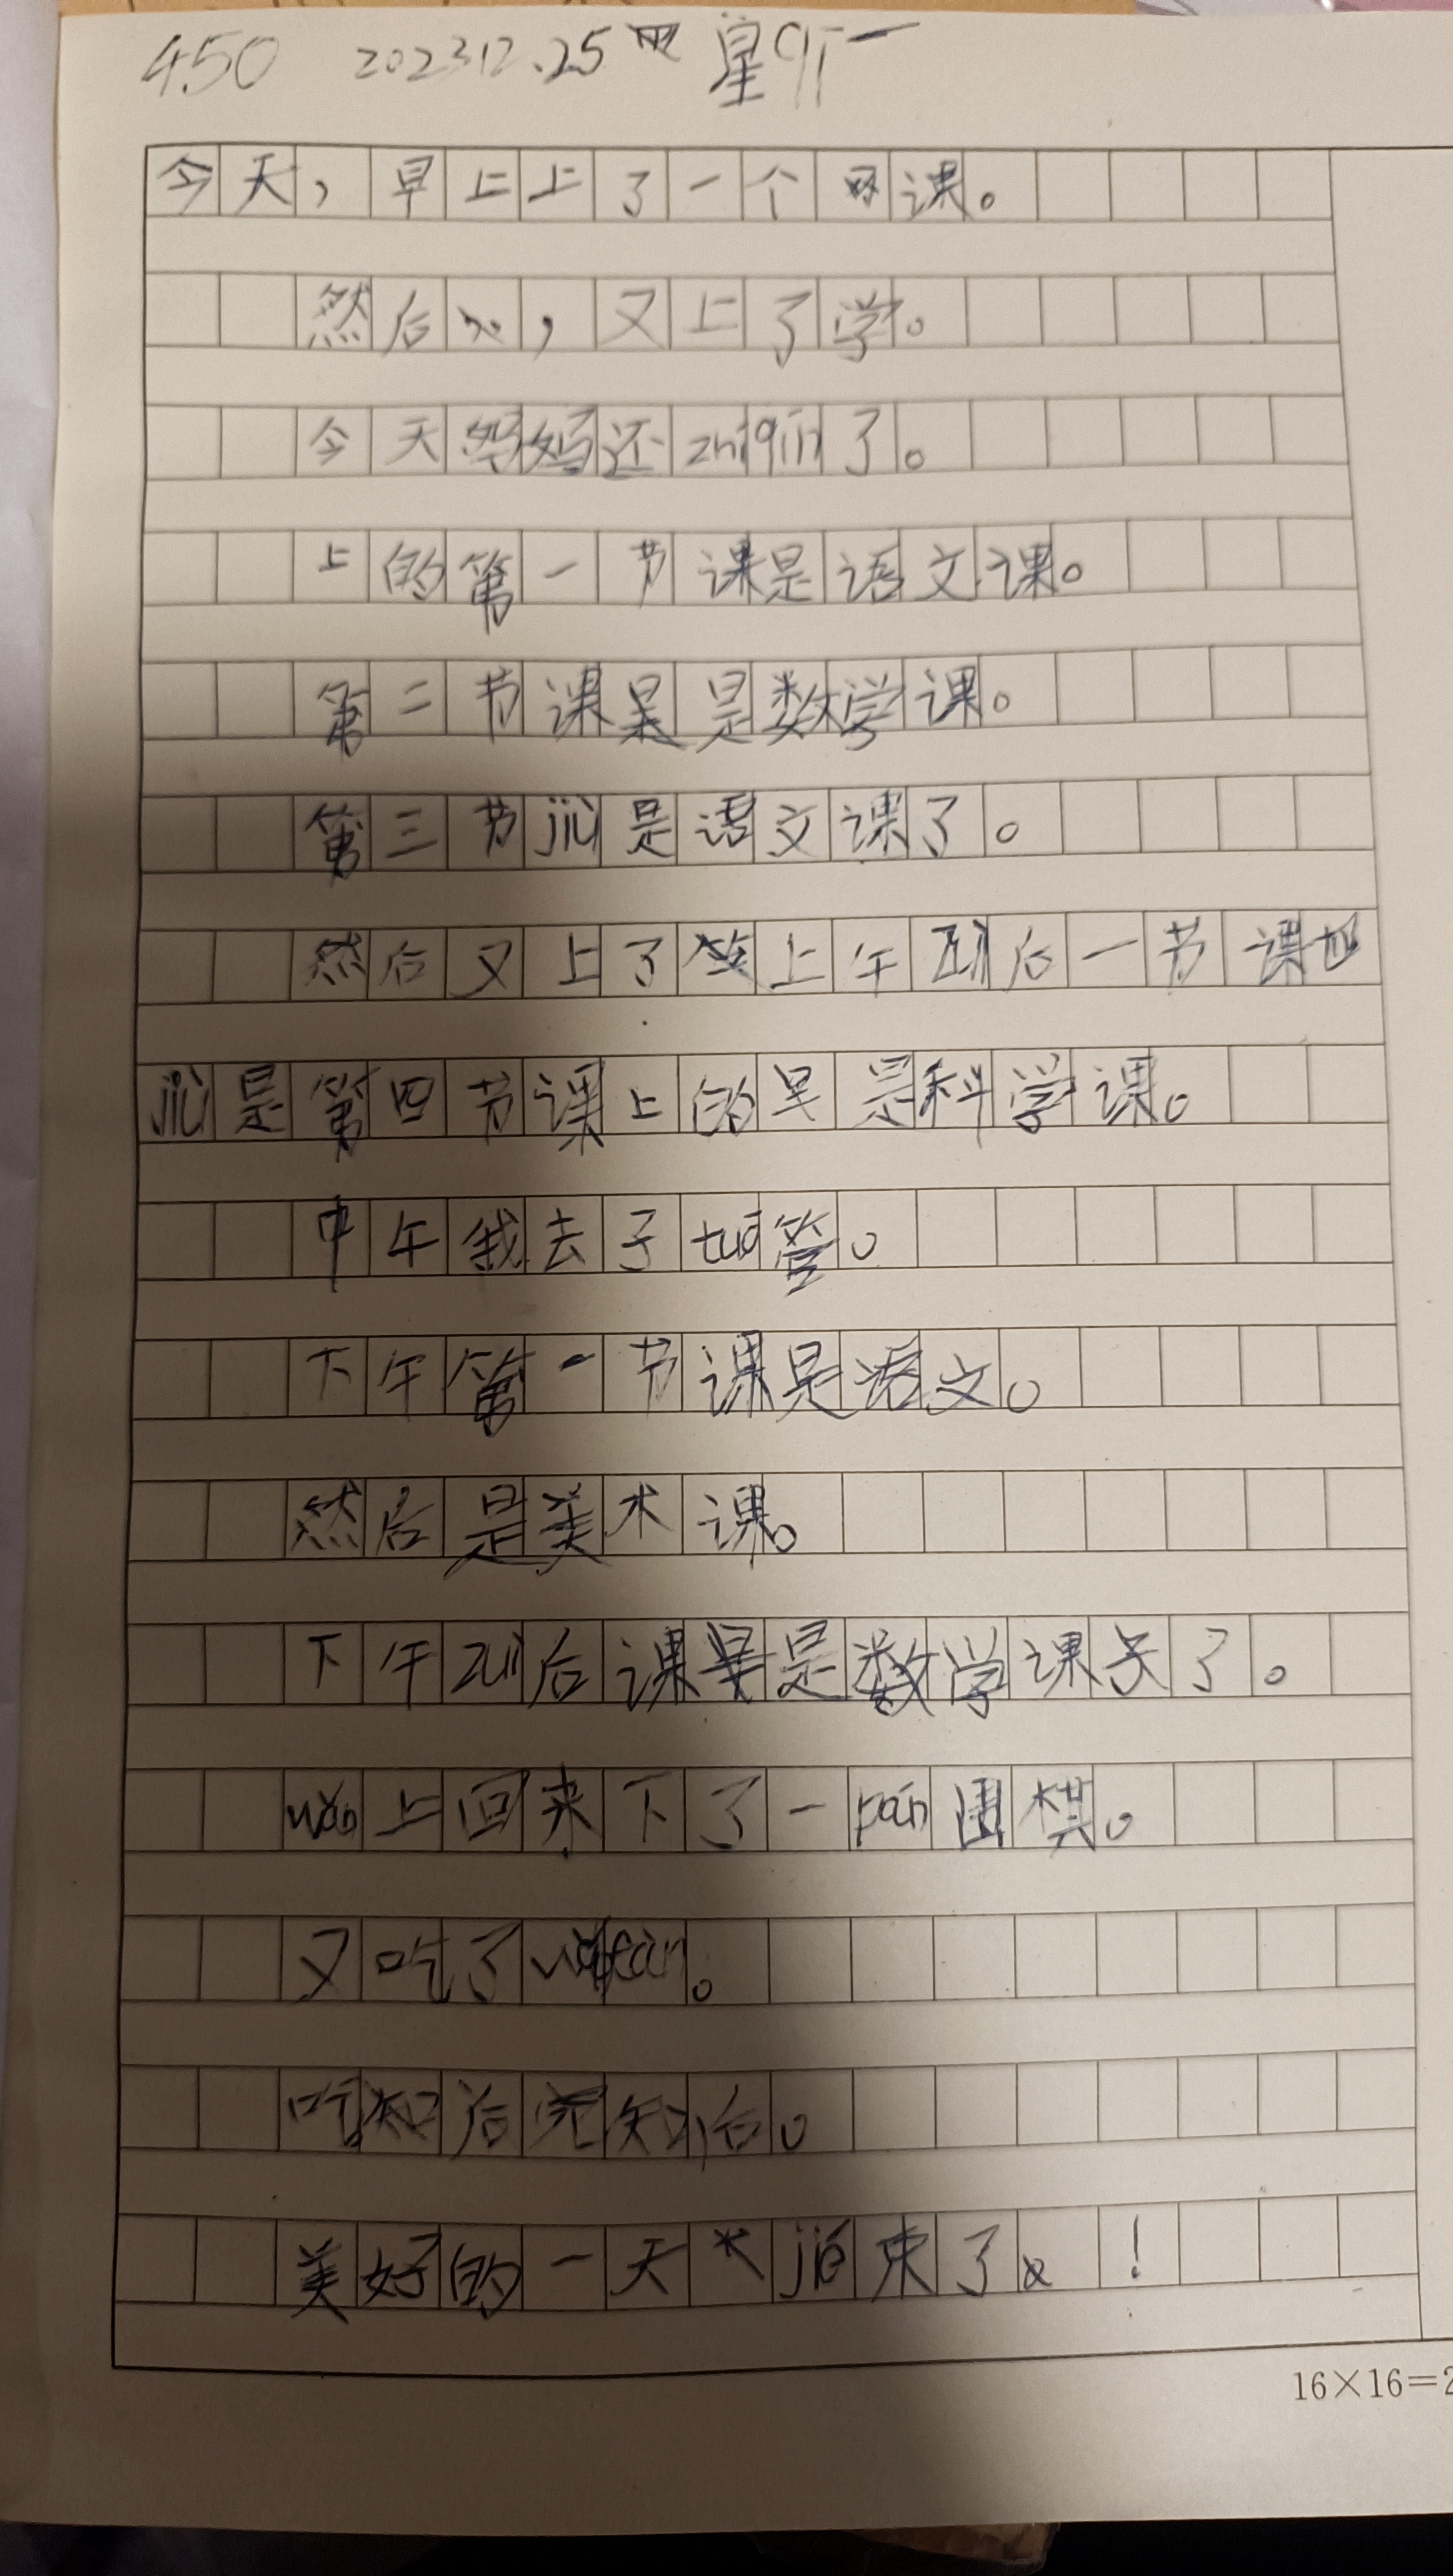 450 2023 12.25 星qī一
今天，早上上了一个网课。
然后，又上了学。
今天妈妈还zhíqín了。
上的第一节课是语文课。
第二节课是数学课。
第三节jiù是语文课了。
然后又上了上午zuì后一节课也
jiù是第四节课上的是科学课。
中午我去了tuō管。
下午第一节课是语文。
然后是美术课。
下午zuì后课是数学课了。
wǎn上回来下了一pán围棋。
又吃了wǎnfàn。
美好的一天jié束了！
16×16=2